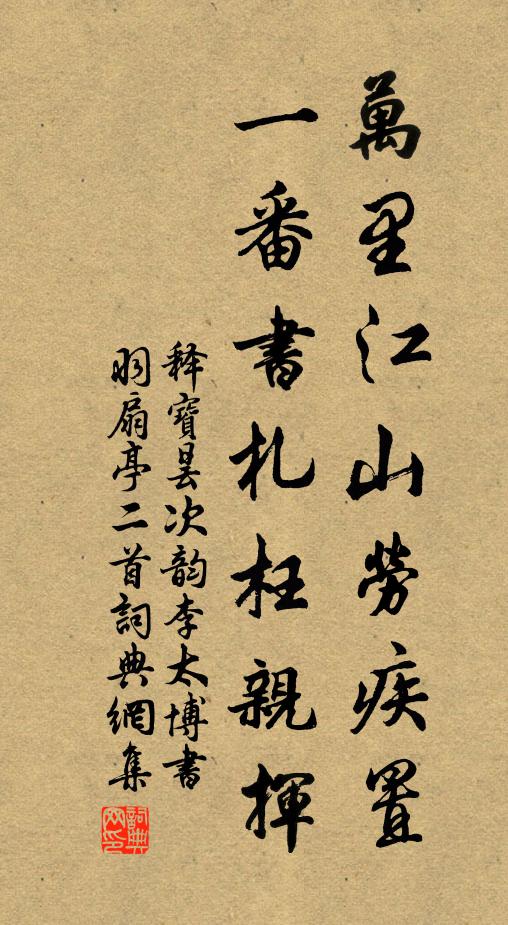 萬里江山勞疾置
一番書札枉親揮
釋寶曇次韵李太博書
羽扇亭二首詞典網集
詞典网印